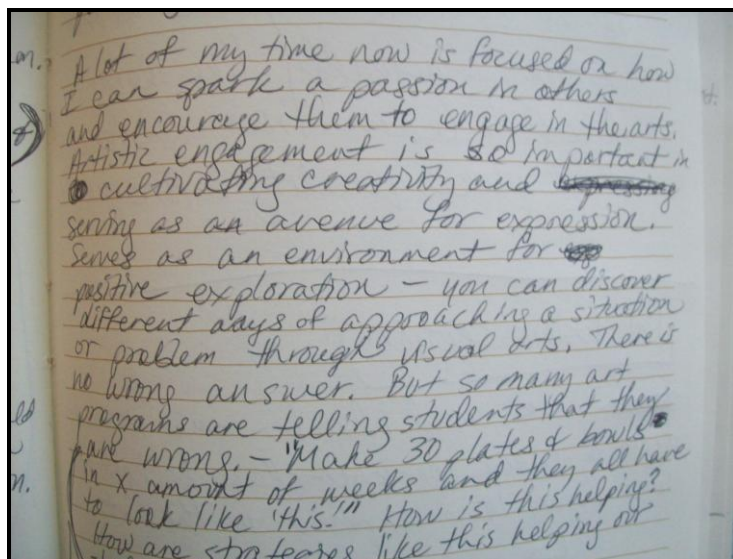 A lot of my time now is focused on how
I can spark a passion in others
and encourage them to engage in the arts.
Artistic engagement is so important in
cultivating creativity and expressing
serving as an avenue for expression.
Serves as an environment for
positive exploration – you can discover
different ways of approaching a situation
or problem through visual arts. There is
no wrong answer. But so many art
programs are telling students that they
are wrong. – "Make 30 plates & bowls
in x amount of weeks and they all have
to look like 'this.'" How is this helping?
How are strategies like this helping our